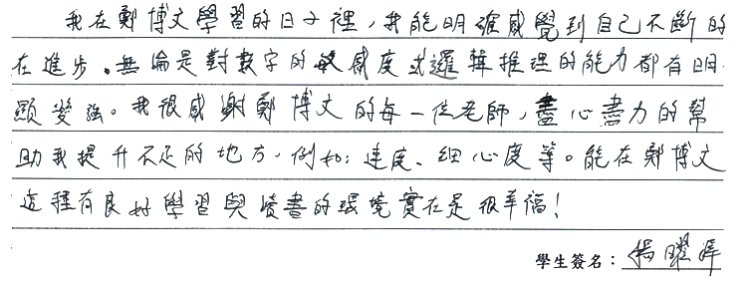 我在鄭博文學習的日子裡，我能明確感覺到自己不斷的
在進步。無論是對數字的敏感度或邏輯推理的能力都有明
顯變強。我很感謝鄭博文的每一位老師，盡心盡力的幫
助我提升不足的地方，例如：速度、細心度等。能在鄭博文
這種有良好學習與讀書的環境實在是很幸福！
學生簽名：楊曜